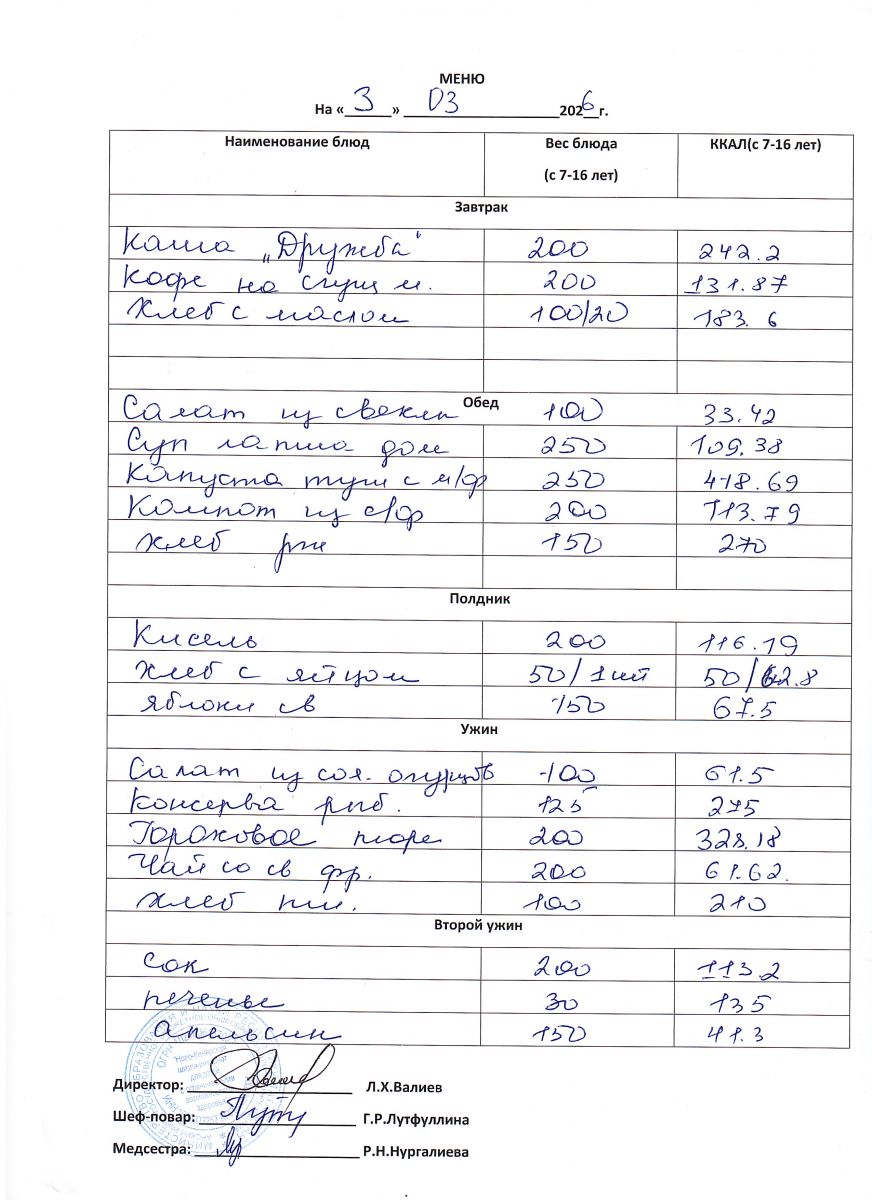 МЕНЮ
На « 3 » 03 2026 г.
Наименование блюд Вес блюда (с 7-16 лет) ККАЛ(с 7-16 лет)
Завтрак
Каша „Дружба" 200 242.2
Кофе на сгущ м. 200 131.87
Хлеб с маслом 100/20 183.6
Обед
Салат из свеклы 100 33.42
Суп лапша дом 250 109.38
Капуста туш с м/ф 250 418.69
Компот из с/ф 200 113.79
хлеб рж 150 270
Полдник
Кисель 200 116.19
хлеб с яйцом 50/1шт 50/62.8
яблоки св 150 67.5
Ужин
Салат из сол. огурцов 100 61.5
Консерва рыб. 125 275
Гороховое пюре 200 328.18
Чай со св фр. 200 61.62.
хлеб пш. 100 210
Второй ужин
сок 200 113.2
печенье 30 135
апельсин 150 41.3
Директор: Л.Х.Валиев
Шеф-повар: Г.Р.Лутфуллина
Медсестра: Р.Н.Нургалиева